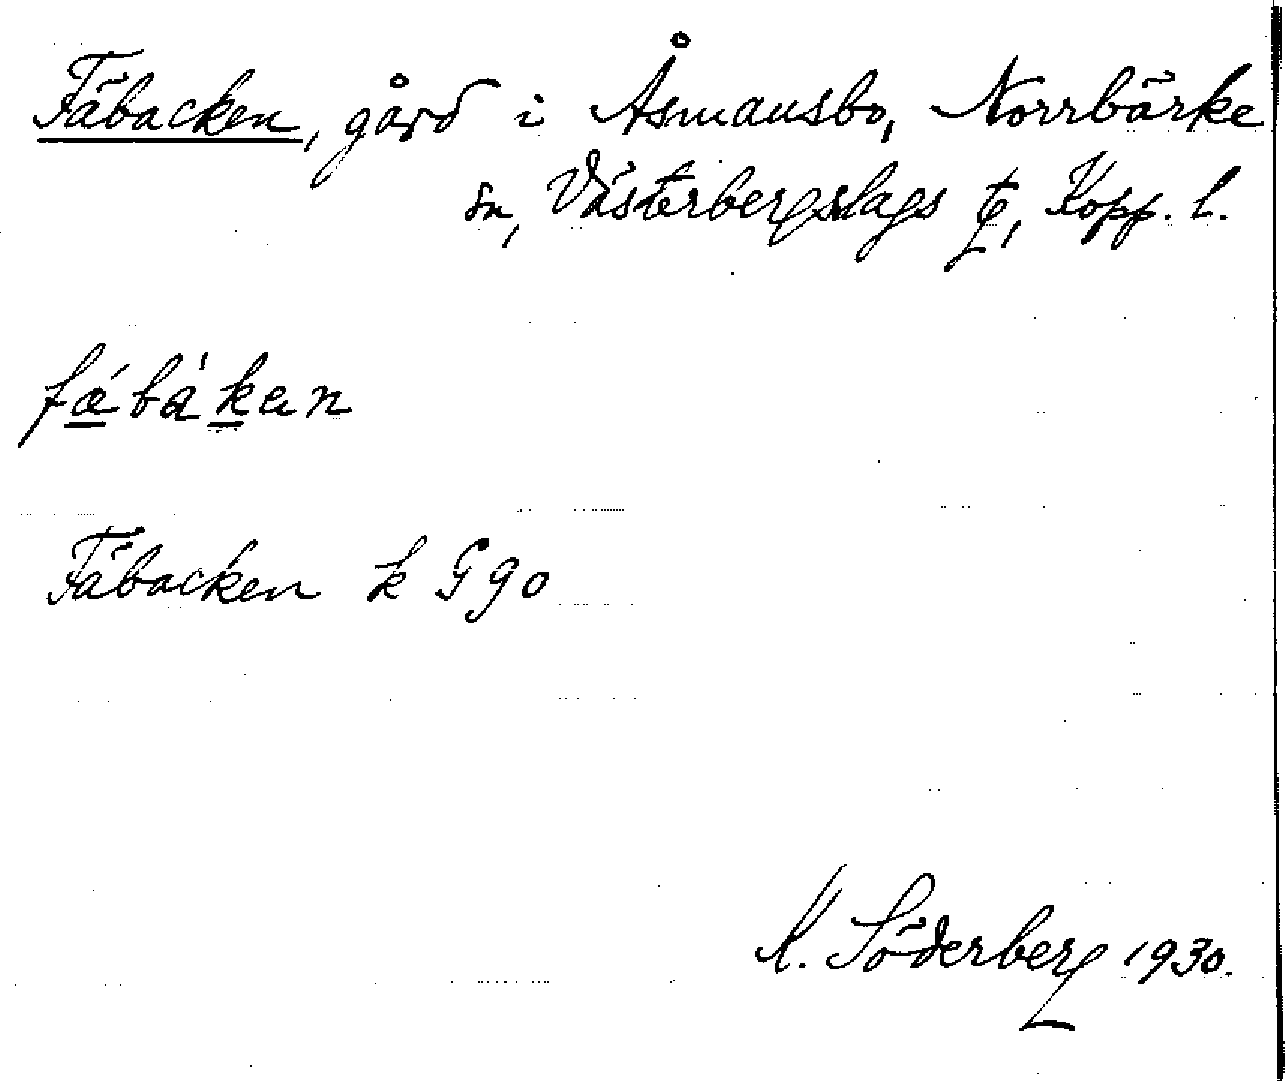 Fäbacken, gård i Åsmansbo, Norrbärke
sn, Västerbergslags t, Kopp. l.
fǽbàkan
Fäbacken k G90
M. Söderberg 1930.